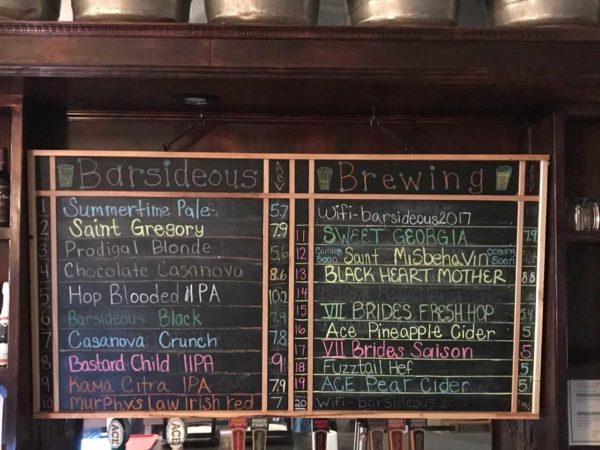 Barsideous ABV
1 Summertime Pale 5.7
2 Saint Gregory 7.9
3 Prodigal Blonde 5.6
4 Chocolate Casanova 8.6
5 Hop Blooded IIPA 10.2
6 Barsideous Black 7.9
7 Casanova Crunch 7.8
8 Bastard Child IIPA 9
9 Kama Citra IPA 7.9
10 Murphy's Law Irish red 7
Brewing
Wifi-barsideous2017
11 SWEET GEORGIA 7.9
12 Coming Soon Saint Misbehavin Coming Soon
13 BLACK HEART MOTHER 8.8
14
15 VII BRIDES FRESH HOP 5.4
16 Ace Pineapple Cider 5
17 VII Brides Saison 5
18 Fuzztail Hef 5
19 ACE Pear Cider 5
20 Wifi-barsideous
ACE